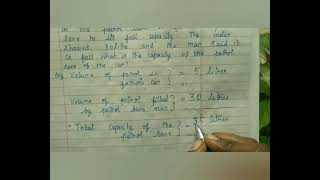 tank to its full capacity. The index
showed 30 litre and the man said it
is full what is the capacity of the petrol
tank of the car?
Volume of petrol in } = 5 liter
father's car
Volume of petrol filled } = 30 litres
by petrol tank man
Total capacity of the } = 35 litres
petrol tank